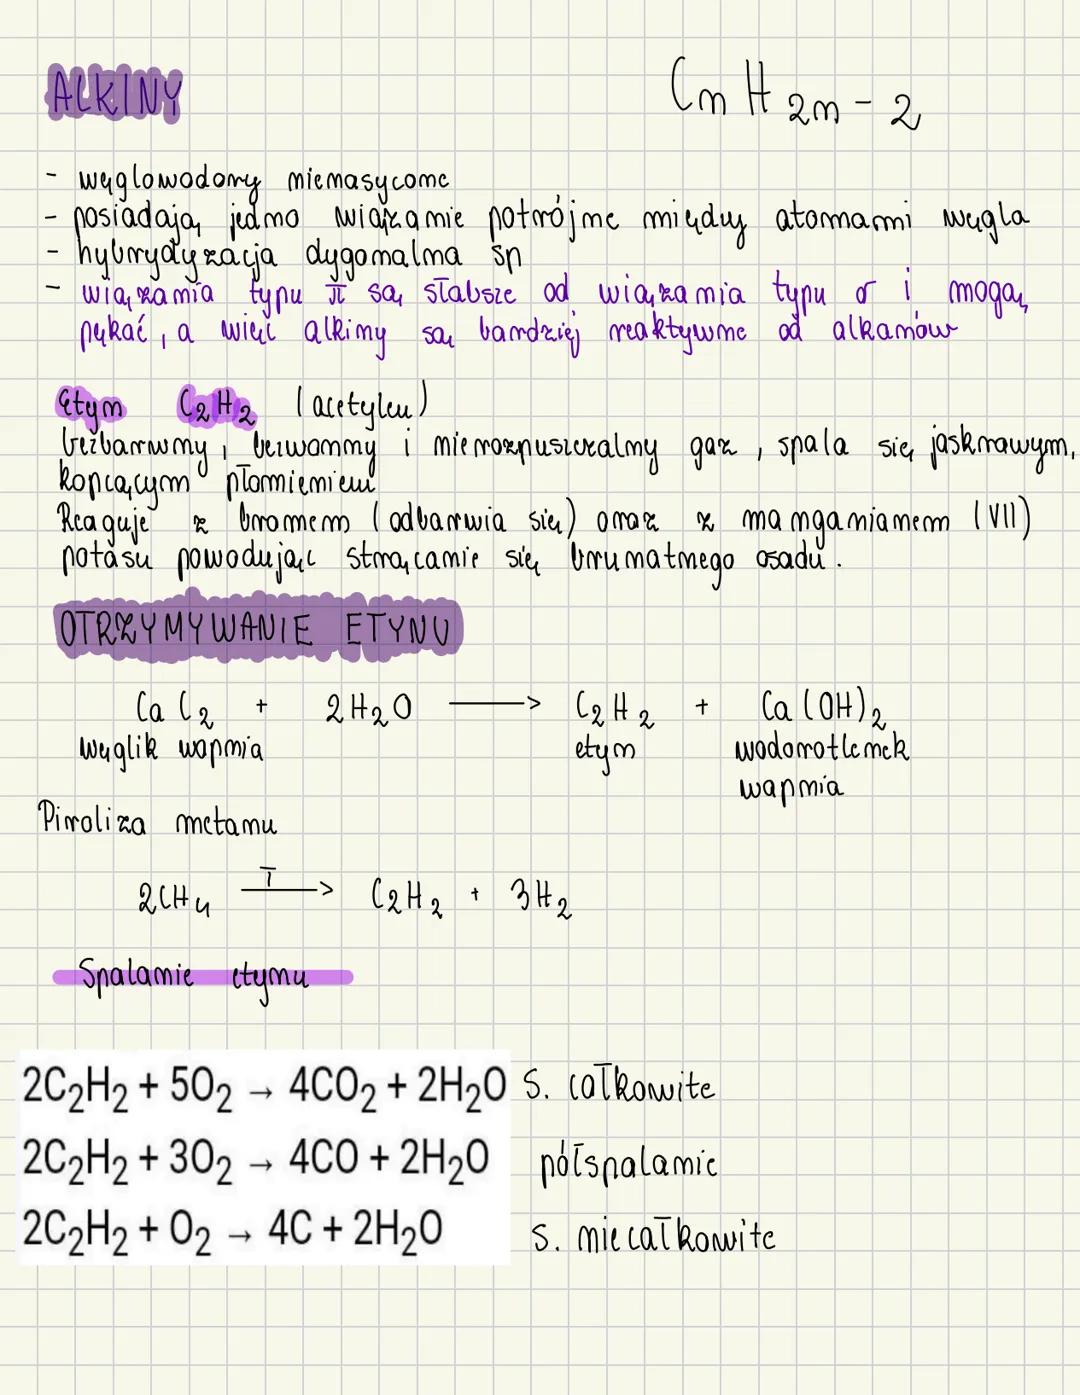 ALKINY
CnH2n-2
- węglowodory nienasycone
- posiadają jedno wiązanie potrójne między atomami węgla
- hybrydyzacja dygonalna sp
- wiązania typu π są słabsze od wiązania typu σ i mogą
pękać, a więc alkiny są bardziej reaktywne od alkanów
Etyn C2H2 (acetylen)
bezbarwny, bezwonny i nierozpuszczalny gaz, spala się jaskrawym,
kopcącym płomieniem
Reaguje z bromem (odbarwia się) oraz z manganianem (VII)
potasu powodując strącanie się brunatnego osadu.
OTRZYMYWANIE ETYNU
CaC2 + 2H2O → C2H2 + Ca(OH)2
węglik wapnia etyn wodorotlenek
wapnia
Piroliza metanu
2CH4 T→ C2H2 + 3H2
Spalanie etynu
2C2H2 + 5O2 → 4CO2 + 2H2O s. całkowite
2C2H2 + 3O2 → 4CO + 2H2O półspalanie
2C2H2 + O2 → 4C + 2H2O s. niecałkowite